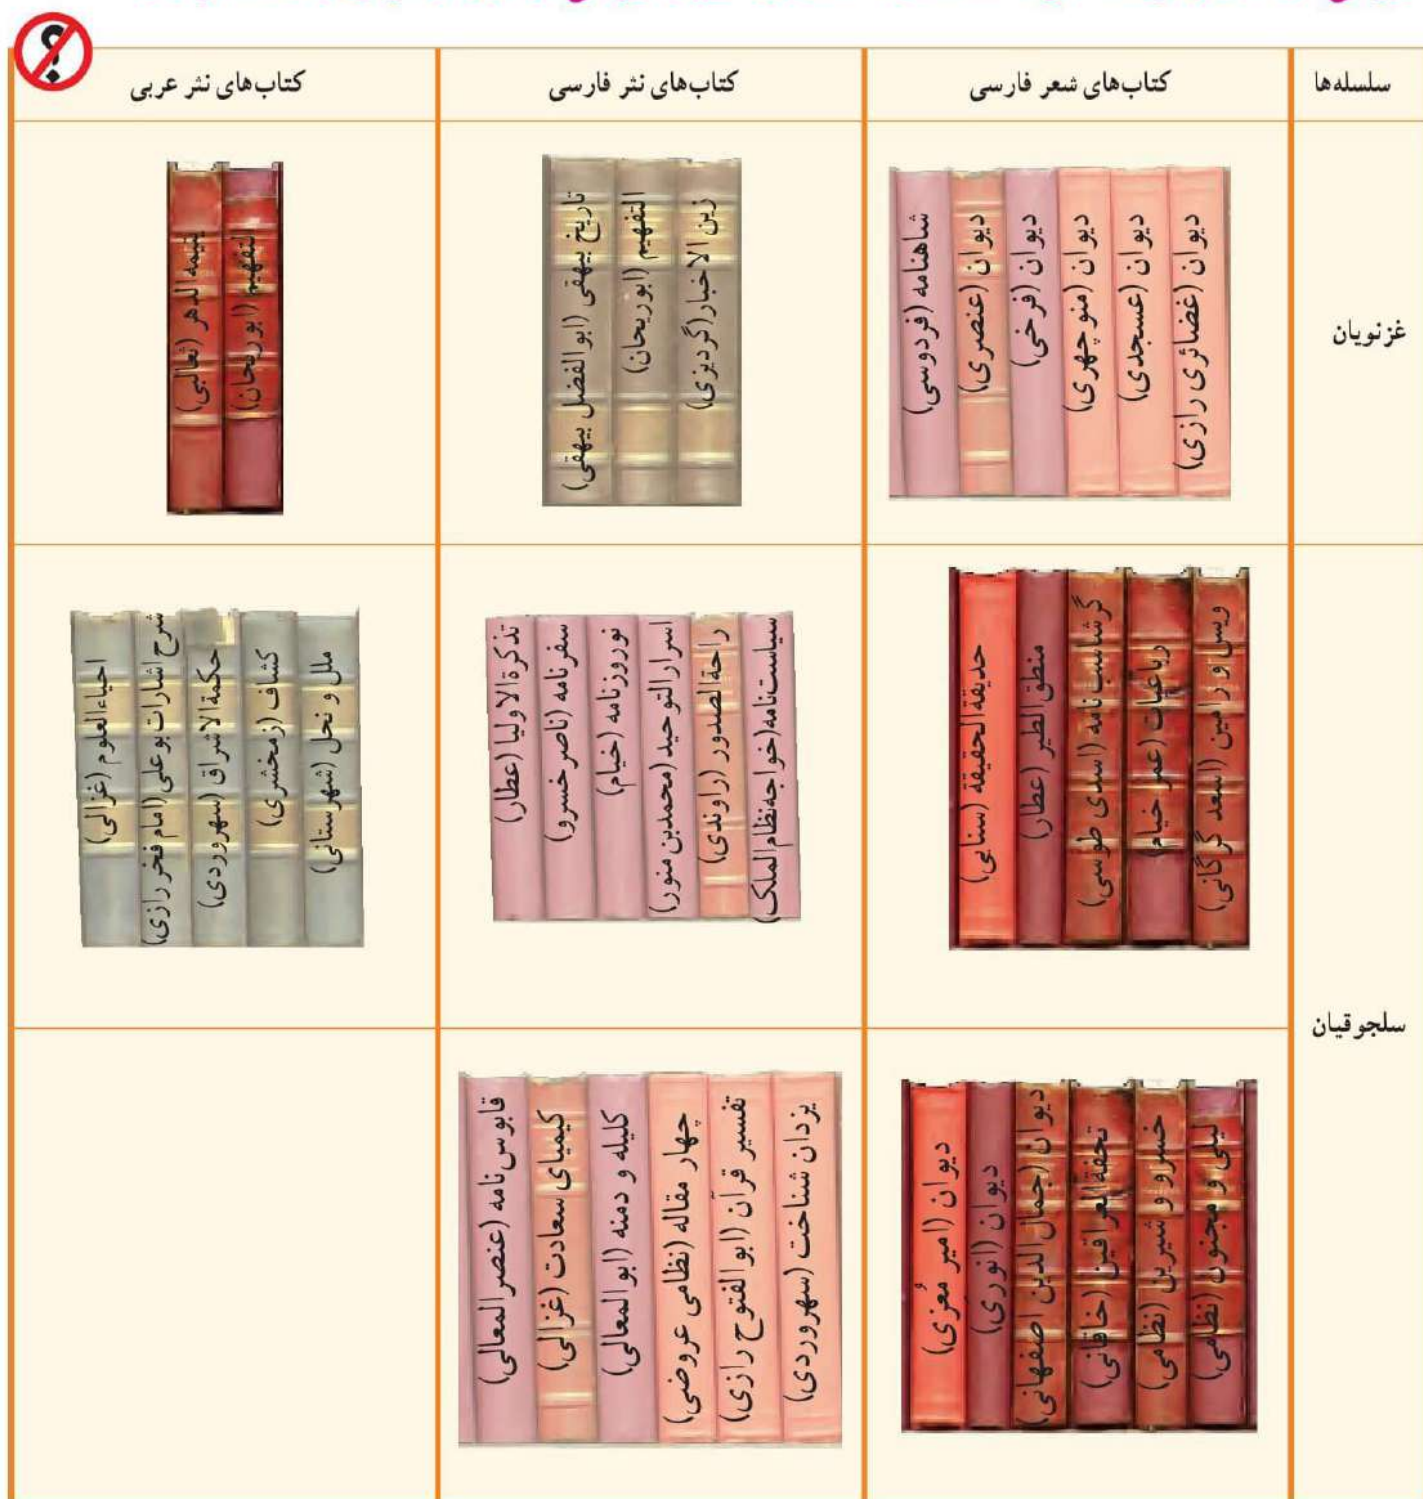 سلسله‌ها
کتاب‌های شعر فارسی
کتاب‌های نثر فارسی
کتاب‌های نثر عربی
غزنویان
دیوان (غضائری رازی)
دیوان (عسجدی)
دیوان (منوچهری)
دیوان (فرخی)
دیوان (عنصری)
شاهنامه (فردوسی)
زین الاخبار (گردیزی)
التفهیم (ابوریحان)
تاریخ بیهقی (ابوالفضل بیهقی)
التفهیم (ابوریحان)
یتیمه الدهر (ثعالبی)
سلجوقیان
ویس و رامین (اسعد گرگانی)
رباعیات (عمر خیام)
گرشاسب نامه (اسدی طوسی)
منطق الطیر (عطار)
حدیقة الحقیقة (سنایی)
سیاست‌نامه (خواجه نظام الملک)
راحة الصدور (راوندی)
اسرار التوحید (محمدبن منور)
نوروزنامه (خیام)
سفرنامه (ناصرخسرو)
تذکرة الاولیا (عطار)
ملل و نحل (شهرستانی)
کشاف (زمخشری)
حکمة الاشراق (سهروردی)
شرح اشارات بوعلی (امام فخر رازی)
احیاء العلوم (غزالی)
لیلی و مجنون (نظامی)
خسرو و شیرین (نظامی)
تحفة العراقین (خاقانی)
دیوان (جمال الدین اصفهانی)
دیوان (انوری)
دیوان (امیر مُعزی)
یزدان شناخت (سهروردی)
تفسیر قرآن (ابوالفتوح رازی)
چهار مقاله (نظامی عروضی)
کلیله و دمنه (ابوالمعالی)
کیمیای سعادت (غزالی)
قابوس نامه (عنصرالمعالی)